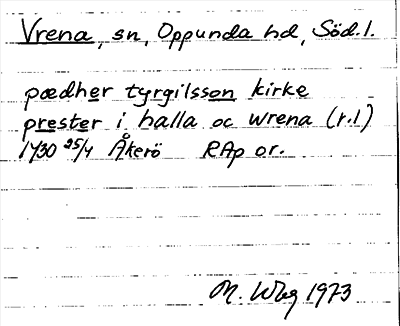 Vrena, sn, Oppunda hd, Söd.l.
pædher tyrgilsson kirke
prester i halla oc wrena (r.1)
1430 25/4 Åkerö RAp or.
M. Wbg 1973